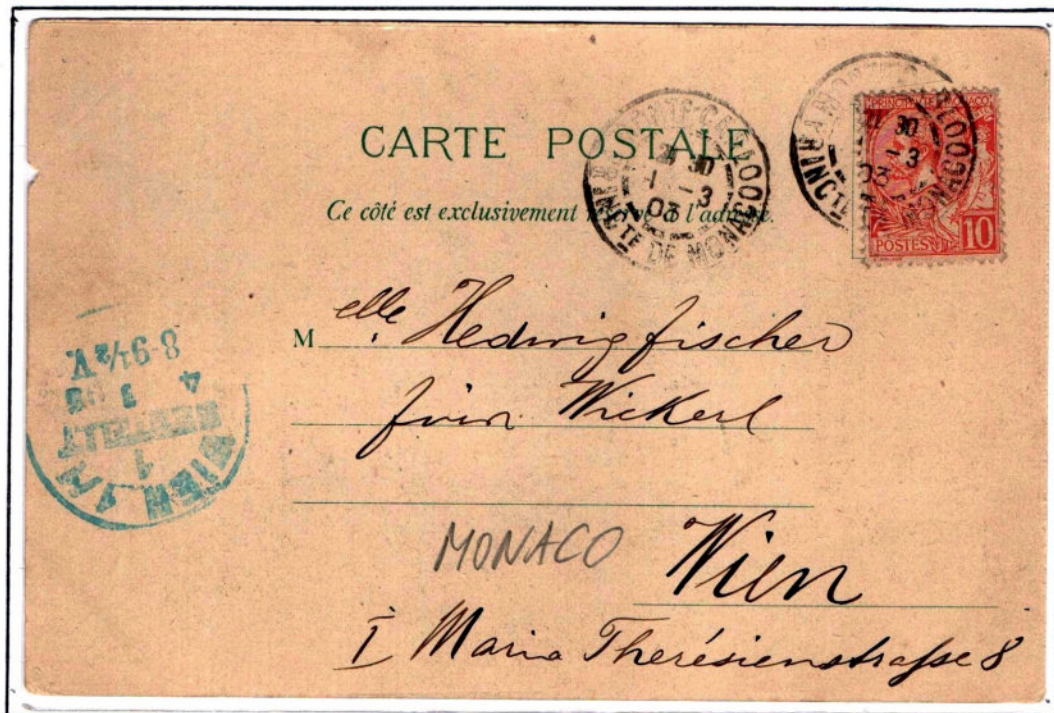 CARTE POSTALE
Ce côté est exclusivement réservé à l'adresse.
MONTE-CARLO
30
1-3
03
PRINCTE DE MONACO
MONTE-CARLO
30
1-3
03
PRINCTE DE MONACO
PRINCIPAUTÉ DE MONACO
POSTES
10
Melle. Hedwig Fischer
Wickerl
Wien
I Maria Therésienstraſse 8
MONACO
WIEN 1/1
1
BESTELLT
4 3 03
8-9½ V.